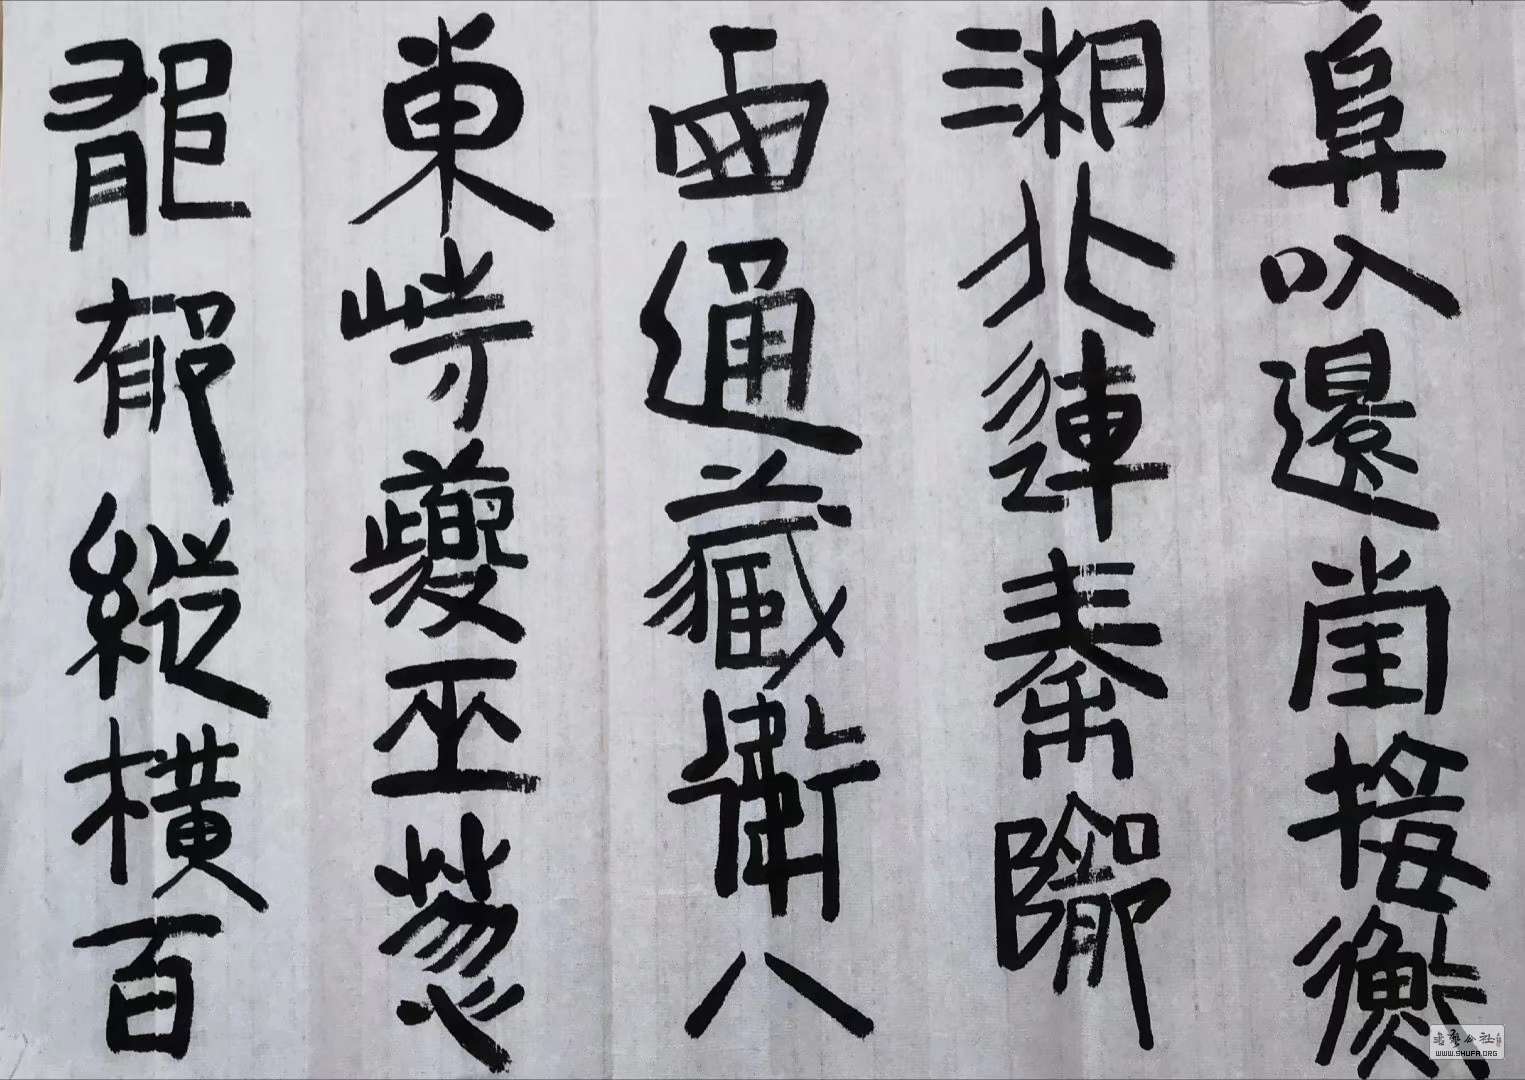 阜以還堂接衡
湘北連秦隃
西通藏衛八
東峙夔巫蔥
龍郁縱橫百
書藝公社
WWW.SHUFA.ORG